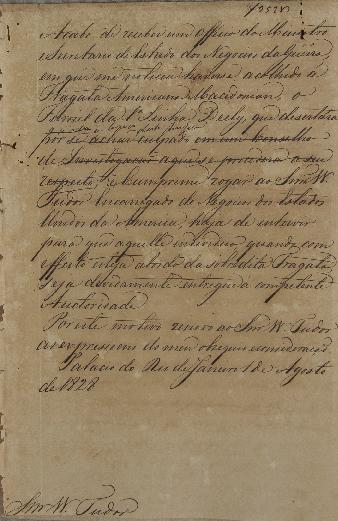 Acabo de receber um Officio do Ministro
e Secretario de Estado dos Negocios da Guerra,
em que me noticia haver-se acolhido a
Fragata Americana Macedonian, o
da 1ª Linha Beely, que desertara
por se achar culpado em um Conselho
de Investigação a que se procedera a seu
respeito, e cumpre-me rogar ao Snr. W.
Tudor Encarregado de Negocios dos Estados
Unidos da America, haja de intervir
para que aquelle individuo, quando com
effeito esteja abordo da sobredita Fragata
seja devidamente entregue a competente
Auctoridade
Por este motivo renovo ao Snr. W. Tudor
as expressoens do meu obsequio e consideração
Palacio do Rio de Janeiro 1 de Agosto
de 1828
Snr. W. Tudor